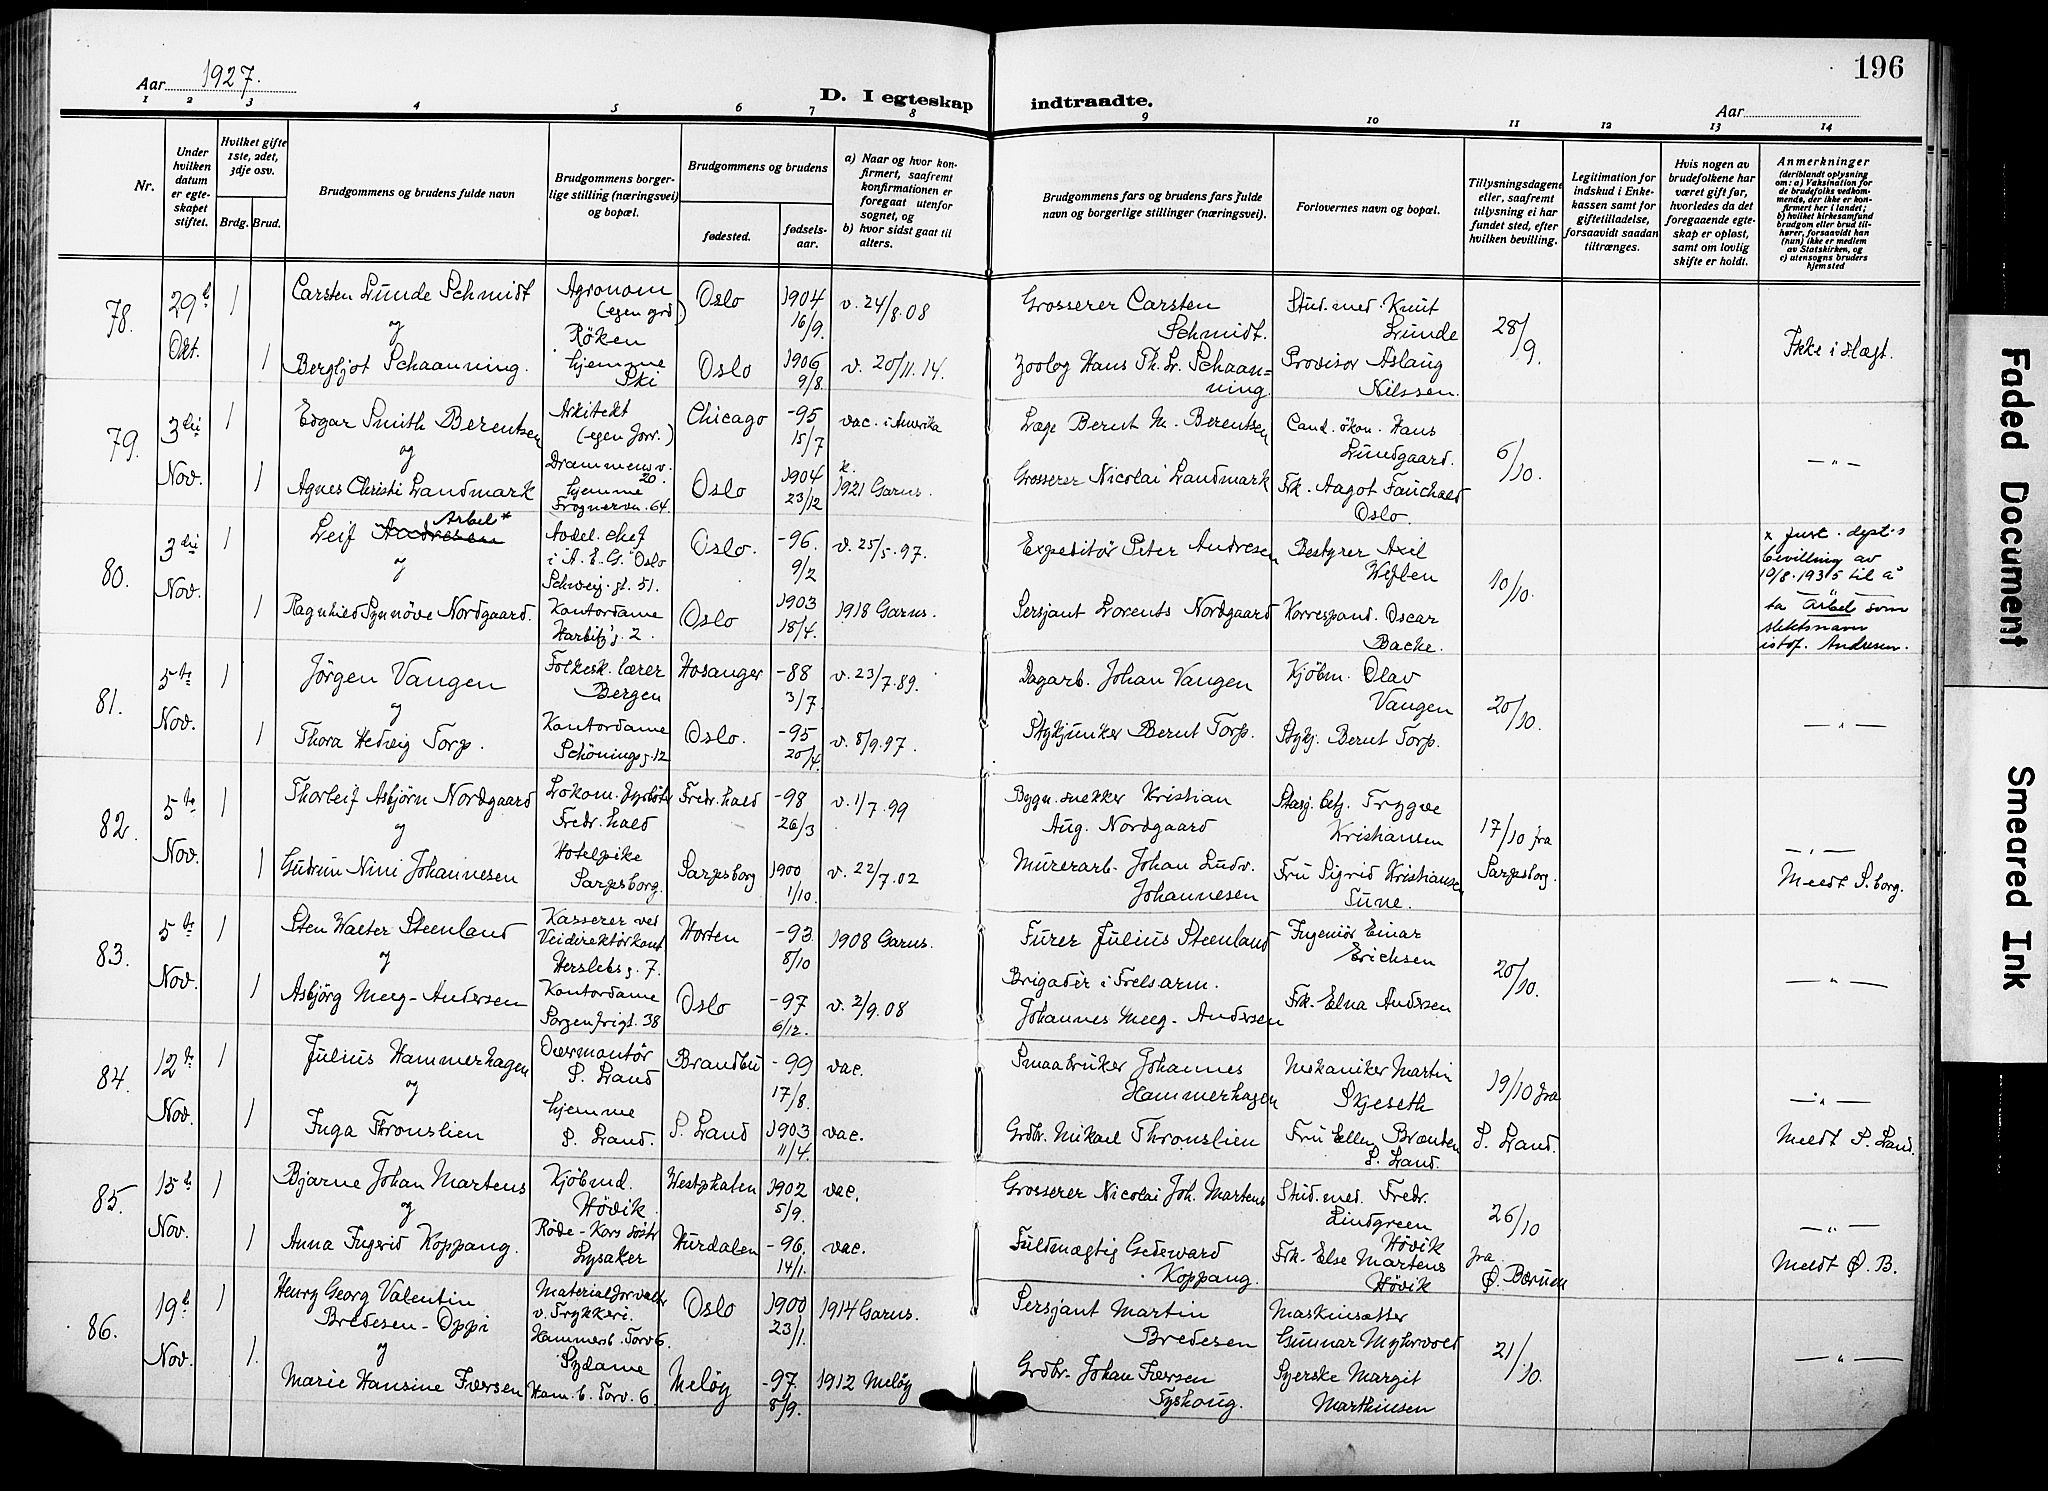 196
Aar 1927.
D. I egteskap indtraadte.
Aar
1 2 3 4 5 6 7 8 9 10 11 12 13 14
Nr.
Under hvilken datum er egteskapet stiftet.
Hvilket gifte 1ste, 2det, 3dje osv.
Brdg. Brud.
Brudgommens og brudens fulde navn
Brudgommens borgerlige stilling (næringsvei) og bopæl.
Brudgommens og brudens
fødested.
fødselsaar.
a) Naar og hvor konfirmert, saafremt konfirmationen er foregaat utenfor sognet, og
b) hvor sidst gaat til alters.
Brudgommens fars og brudens fars fulde navn og borgerlige stillinger (næringsvei).
Forlovernes navn og bopæl.
Tillysningsdagene eller, saafremt tillysning ei har fundet sted, efter hvilken bevilling.
Legitimation for indskud i Enkekassen samt for giftetilladelse, forsaavidt saadan tiltrænges.
Hvis nogen av brudefolkene har været gift før, hvorledes da det foregaaende egteskap er opløst, samt om lovlig skifte er holdt.
Anmerkninger (deriblandt oplysning om: a) Vaksination for de brudefolks vedkommende, der ikke er konfirmert her i landet; b) hvilket kirkesamfund brudgom eller brud tilhører, forsaavidt han (hun) ikke er medlem av Statskirken, og c) utensogns bruders hjemsted
78. 29t Okt. 1 Carsten Lunde Schmidt Agronom (egen grd) Röken Oslo 1904 16/9. v. 24/8.08 Grosserer Carsten Schmidt. Stud. med. Knut Lunde 28/9. Ikke i slegt.
og
1 Bergljot Schaanning. hjemme Ski Oslo 1906 9/8. v. 20/11.14. Zoolog Hans Th. L. Schaanning. Provisor Aslaug Nilssen.
79. 3die Nov. 1 Edgar Smith Berentsen Arkitekt (egen forr.) Drammensv. 20. Chicago -95 15/7 vac. i Amerika Læge Bernt M. Berentsen Cand. ökon. Hans Lundgaard. 6/10. — " —
og
1 Agnes Christi Landmark hjemme Frognervn. 64. Oslo 1904 23/12 k. 1921 Garns. Grosserer Nicolai Landmark Frk. Aagot Fauchald Oslo.
80. 3die Nov. 1 Leif Andresen Arbel* Avdel. chef i A. E. G. Oslo Schweig. gt. 51. Oslo. -96. 9/2 v. 25/5.97. Expeditör Peter Andresen Bestyrer Axil Weflen 10/10. x Just. dept.s bevilling av 10/8.1935 til å ta Arbel som slektsnavn istdf. Andresen.
og
1 Ragnhild Synnöve Nordgaard. Kontordame Harbitz'g. 2. Oslo 1903 18/4. 1918 Garns. Sersjant Lorents Nordgaard Korrespond. Oscar Backe.
81. 5te Nov. 1 Jörgen Vangen Folkesk. lærer Bergen Hosanger -88 3/7. v. 23/7.89. Dagarb. Johan Vangen Kjöbm. Olav Vangen 20/10. — " —
og
1 Thora Hedvig Torp. Kontordame Schönings g. 12 Oslo. -95 20/4. v. 8/9.97. Stykjunker Bernt Torp. Stykj. Bernt Torp.
82. 5te Nov. 1 Thorleif Asbjörn Nordgaard Lokom. fyrböter Fredr.hald Fredr.hald -98 26/3 v. 1/7.99 Bygn. snekker Kristian Aug. Nordgaard Stasj. betj. Trygve Kristiansen 17/10 fra Sarpsborg. — " —
og
1 Gudrun Nini Johannesen Hotelpike Sarpsborg. Sarpsborg 1900 1/10. v. 22/7.02 Murerarb. Johan Ludv. Johannesen Fru Sigrid Kristiansen Tune. Meldt S.borg.
83. 5te Nov. 1 Sten Walter Steenland Kasserer ved Veidirektörkont Herslebs g. 7. Horten -93. 8/10 1908 Garns. Furer Julius Steenland Ingeniör Einar Erichsen 20/10. — " —
og
1 Asbjörg Meeg-Andersen Kontordame Sorgenfrigt. 38 Oslo -97 6/12. v. 2/9.08 Brigadér i Frelsarm. Johannes Meeg-Andersen Frk. Elna Andersen
84. 12te Nov. 1 Julius Hammerhagen Overmontör S. Land Brandbu -99 17/8. vac. Smaabruker Johannes Hammerhagen Mekaniker Martin Skjeseth 19/10 fra S. Land. — " —
og
1 Inga Thronslien hjemme S. Land. S. Land 1903 11/4. vac. Grdbr. Mikael Thronslien Fru Ellen Brænden S. Land. Meldt S. Land.
85. 15t Nov. 1 Bjarne Johan Martens Kjöbmd. Hövik. Westphalen 1902 5/9. vac. Grosserer Nicolai Joh. Martens Stud. med. Fredr. Lindgreen Hövik 26/10 fra Ø. Bærum — " —
og
1 Anna Ingerid Koppang. Röde-Kors söster Lysaker Hurdalen -96. 14/1. vac. Fuldmægtig Gedeward Koppang. Frk. Else Martens Hövik Meldt Ø. B.
86. 19t Nov. 1 Henry Georg Valentin Bredesen-Oppi Materialforvalter v. Trykkeri. Hammersb. Torv 6. Oslo 1900 23/1. 1914 Garns. Sersjant Martin Bredesen Maskinsætter Gunnar Myhrvold 21/10. — " —
og
1. Marie Hansine Iversen Sydame Ham. b. Torv. 6 Melöy -97. 8/9. 1912 Melöy Grdbr. Johan Iversen Tyskoug. Syerske Margit Marthinsen
Faded Document
Smeared Ink